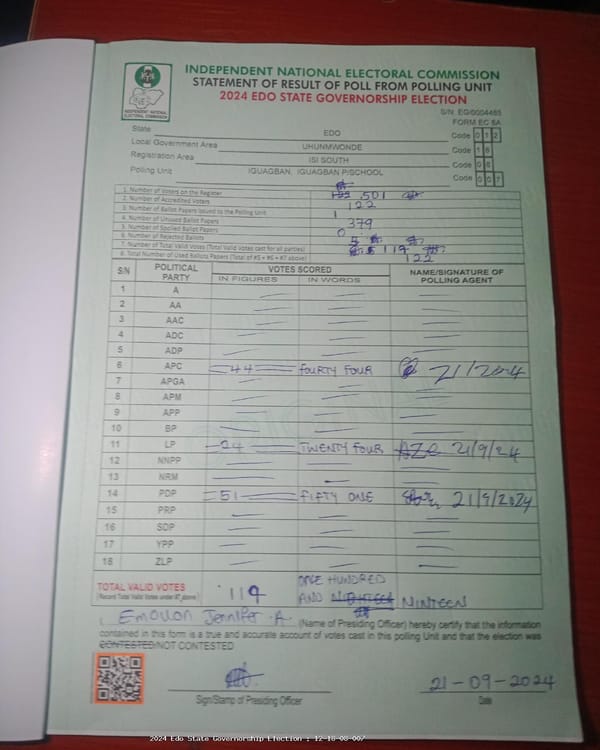 INDEPENDENT NATIONAL ELECTORAL COMMISSION
STATEMENT OF RESULT OF POLL FROM POLLING UNIT
2024 EDO STATE GOVERNORSHIP ELECTION
INDEPENDENT NATIONAL ELECTORAL COMMISSION
S/N: EG/0004485
FORM EC 8A
State EDO Code 0 1 2
Local Government Area UHUNMWONDE Code 1 8
Registration Area ISI SOUTH Code 0 8
Polling Unit IGUAGBAN, IGUAGBAN P/SCHOOL Code 0 0 7
1. Number of Voters on the Register 501
2. Number of Accredited Voters 122
3. Number of Ballot Papers Issued to the Polling Unit
4. Number of Unused Ballot Papers 379
5. Number of Spoiled Ballot Papers 0
6. Number of Rejected Ballots
7. Number of Total Valid Votes (Total Valid Votes cast for all parties) 119
8. Total Number of Used Ballots Papers (Total of #5 + #6 + #7 above) 122
S/N POLITICAL PARTY VOTES SCORED NAME/SIGNATURE OF POLLING AGENT
IN FIGURES IN WORDS
1 A
2 AA
3 AAC
4 ADC
5 ADP
6 APC 44 FOURTY FOUR 21/2024
7 APGA
8 APM
9 APP
10 BP
11 LP 24 TWENTY FOUR 21/9/24
12 NNPP
13 NRM
14 PDP 51 FIFTY ONE 21/9/2024
15 PRP
16 SDP
17 YPP
18 ZLP
TOTAL VALID VOTES 119 ONE HUNDRED
(Record Total Valid Votes under #7 above) AND NINTEEN
I, Jennifer A. (Name of Presiding Officer) hereby certify that the information
contained in this form is a true and accurate account of votes cast in this polling Unit and that the election was
CONTESTED/NOT CONTESTED
21-09-2024
Sign/Stamp of Presiding Officer Date
2024 Edo State Governorship Election : 12-18-08-007